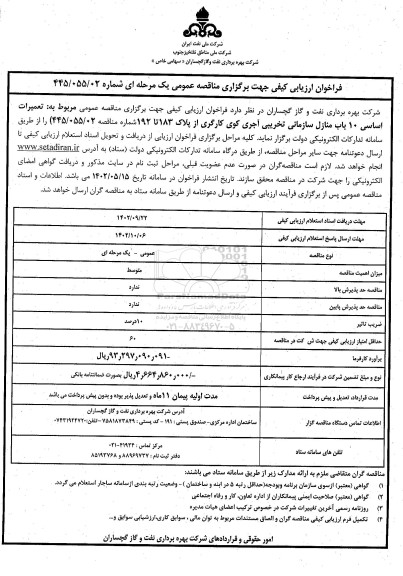 شرکت ملی نفت ایران
شرکت ملی مناطق نفتخیز جنوب
شرکت بهره برداری نفت و گاز گچساران «سهامی خاص»
فراخوان ارزیابی کیفی جهت برگزاری مناقصه عمومی یک مرحله ای شماره ۴۴۵/۰۵۵/۰۲
شرکت بهره برداری نفت و گاز گچساران در نظر دارد فراخوان ارزیابی کیفی جهت برگزاری مناقصه عمومی مربوط به: تعمیرات
اساسی ۱۰ باب منازل سازمانی تخریبی آجری کوی کارگری از پلاک ۱۸۳ تا ۱۹۲ شماره مناقصه ۴۴۵/۰۵۵/۰۲) را از طریق
سامانه تدارکات الکترونیکی دولت برگزار نماید. کلیه مراحل برگزاری فراخوان ارزیابی از دریافت و تحویل اسناد استعلام ارزیابی کیفی تا
ارسال دعوتنامه جهت سایر مراحل مناقصه، از طریق درگاه سامانه تدارکات الکترونیکی دولت (ستاد) به آدرس www.setadiran.ir
انجام خواهد شد. لازم است مناقصه‌گران در صورت عدم عضویت قبلی، مراحل ثبت نام در سایت مذکور و دریافت گواهی امضای
الکترونیکی را جهت شرکت در مناقصه محقق سازند. تاریخ انتشار فراخوان در سامانه تاریخ ۱۴۰۲/۰۵/۱۵ می باشد. اطلاعات و اسناد
مناقصه عمومی پس از برگزاری فرآیند ارزیابی کیفی و ارسال دعوتنامه از طریق سامانه ستاد به مناقصه گران ارسال خواهد شد.
مهلت دریافت اسناد استعلام ارزیابی کیفی ۱۴۰۲/۰۹/۲۲
مهلت ارسال پاسخ استعلام ارزیابی کیفی ۱۴۰۲/۱۰/۰۶
نوع مناقصه عمومی - یک مرحله ای
میزان اهمیت مناقصه متوسط
مناقصه حد پذیرش بالا ندارد
مناقصه حد پذیرش پایین ندارد
ضریب تاثیر ۱۰درصد
حداقل امتیاز ارزیابی کیفی جهت شرکت در مناقصه ۶۰
برآورد کارفرما ۹۳٫۲۹۷٫۰۹۰٫۰۹۱-ریال
نوع و مبلغ تضمین شرکت در فرآیند ارجاع کار پیمانکاری ۴٫۶۶۴٫۸۶۰٫۰۰۰/-ریال بصورت ضمانتنامه بانکی
مدت قرارداد، تعدیل و پیش پرداخت مدت اولیه پیمان ۱۱ماه و تعدیل پذیر بوده و بدون پیش پرداخت می باشد
اطلاعات تماس دستگاه مناقصه گزار آدرس شرکت بهره برداری نفت و گاز گچساران
ساختمان اداره مرکزی- صندوق پستی : ۱۹۱ - کد پستی :
تلفن های سامانه ستاد مرکز تماس : ۴۱۹۳۴-۰۲۱
دفتر ثبت نام : ۸۸۹۶۹۷۳۷ و ۸۵۱۹۳۷۶۸
مناقصه گران متقاضی ملزم به ارائه مدارک زیر از طریق سامانه ستاد می باشند:
۱) گواهی (معتبر) ازسوی سازمان برنامه وبودجه(حداقل رتبه ۵ در ابنه و ساختمان) - وضعیت رتبه بندی ازسامانه ساجار استعلام می گردد.
۲) گواهی (معتبر) صلاحیت ایمنی پیمانکاران از اداره تعاون، کار و رفاه اجتماعی
۳) روزنامه رسمی آخرین تغییرات شرکت در خصوص ترکیب اعضای هیات مدیره
۴) تکمیل فرم ارزیابی کیفی مناقصه گران و الصاق مستندات مربوط به توان مالی ، سوابق کاری،ارزشیابی سوابق و...
امور حقوقی و قراردادهای شرکت بهره برداری نفت و گاز گچساران